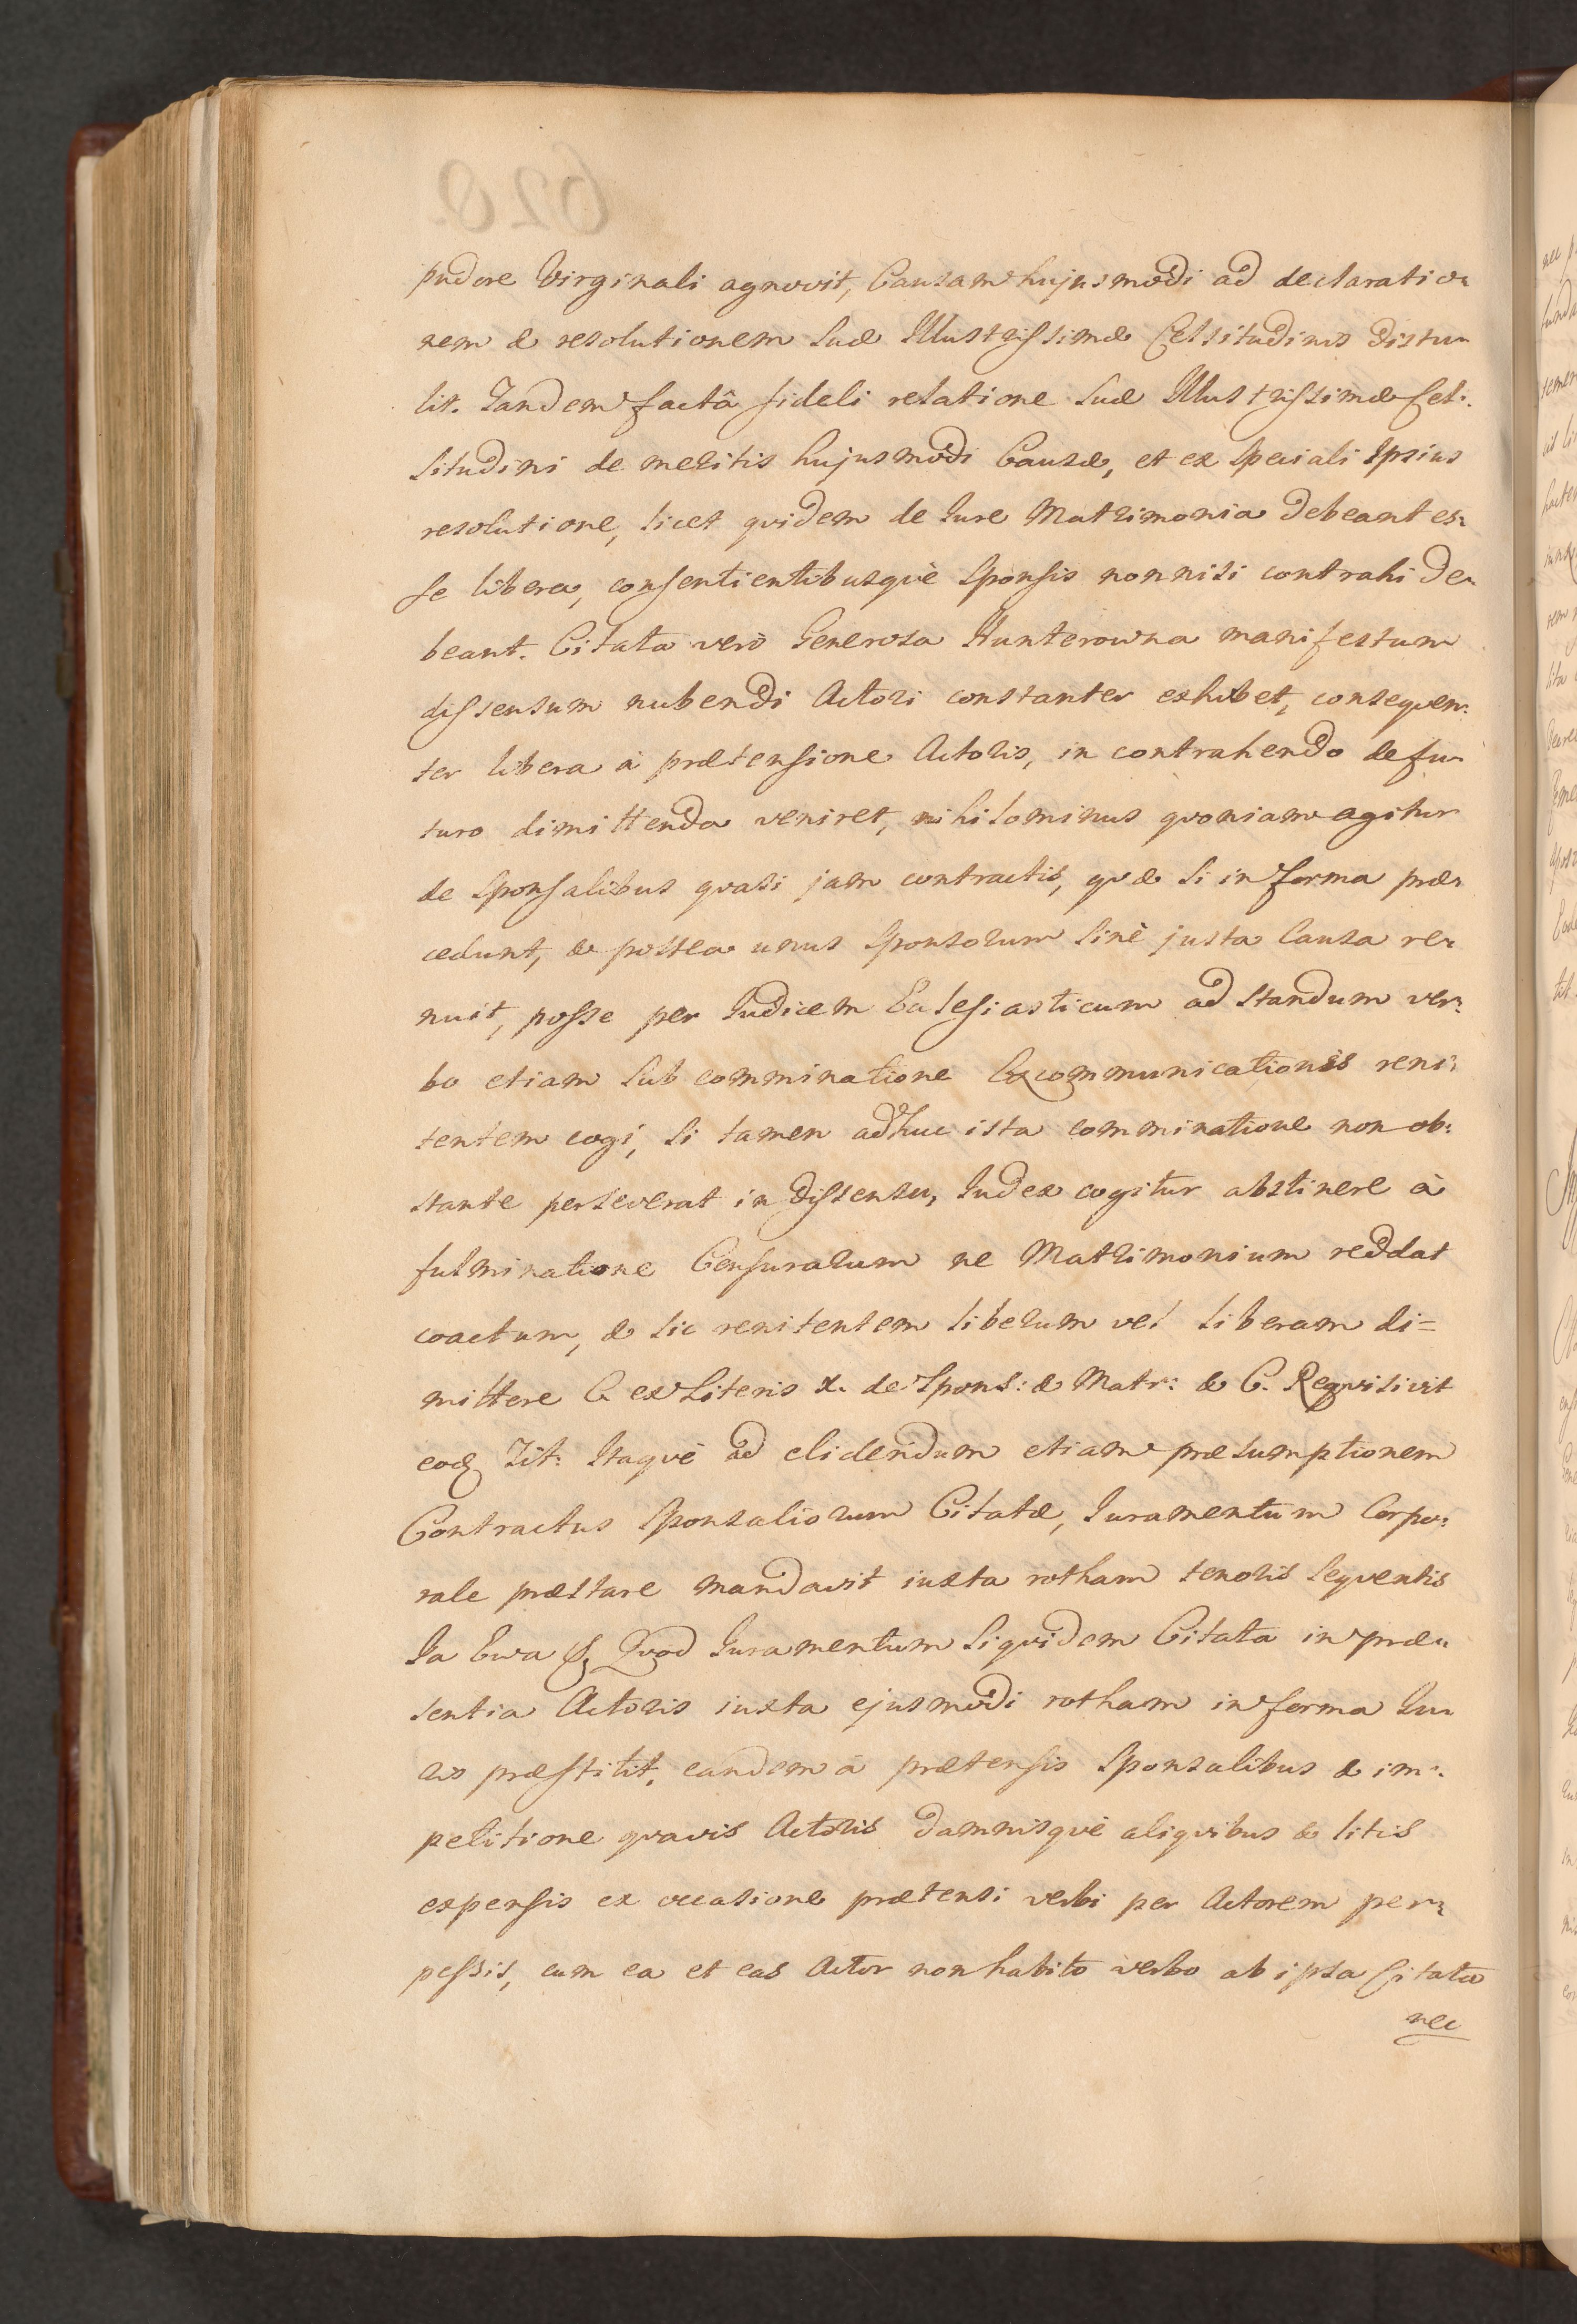 pudore Virginali agnovit, Causam hujusmodi ad declaratio-
nem & resolutionem Suæ Illustrissimæ Celsitudinis distu-
lit. Tandem factâ fideli relatione Suæ Illustrissimæ Cel-
situdini de meritis hujusmodi Causæ, et ex speciali Ipsius
resolutione, licet quidem de Iure Matrimonia debeant es-
se libera, consentientibusquè Sponsis nonnisi contrahi de-
beant. Citata verò Generosa Hunterowna manifestum
dissensum nubendi Actori constanter exhibet, consequen-
ter libera à prætensione Actoris, in contrahendo de fu-
turo dimittenda veniret, nihilominus quoniam agitur
de Sponsalibus quasi jam contractis, quæ si in forma præ-
cedunt, & postea unus Sponsorum sinè justa Causa re-
nuit, posse per Iudicem Eclesiasticum ad standum ver-
bo etiam sub comminatione Excommunicationis reni-
tentem cogi, si tamen adhuc ista comminatione non ob-
stante perseverat in dissensu, Iudex cogitur abstinere à
fulminatione Censurarum ne Matrimonium reddat
coactum, & sic renitentem liberum vel liberam di=
mittere C. ex Literis X. de Spons: & Matr: & C. Requisivit
eod Tit: Itaquè ad elidendum etiam præsumptionem
Contractus Sponsaliorum Citatæ, Iuramentum Corpo-
rale præstare mandavit iuxta rotham tenoris sequentis
Ia Ewa & Quod Iuramentum siquidem Citata in præ-
sentia Actoris iuxta ejusmodi rotham in forma Iu-
ris præstitit, eandem à prætensis Sponsalibus & im-
petitione quavis Actoris damnisquè aliquibus & litis
expensis ex occasione prætensi verbi per Actorem per-
pessis, cum ea et eas Actor non habito verbo ab ipsa Citata
nec